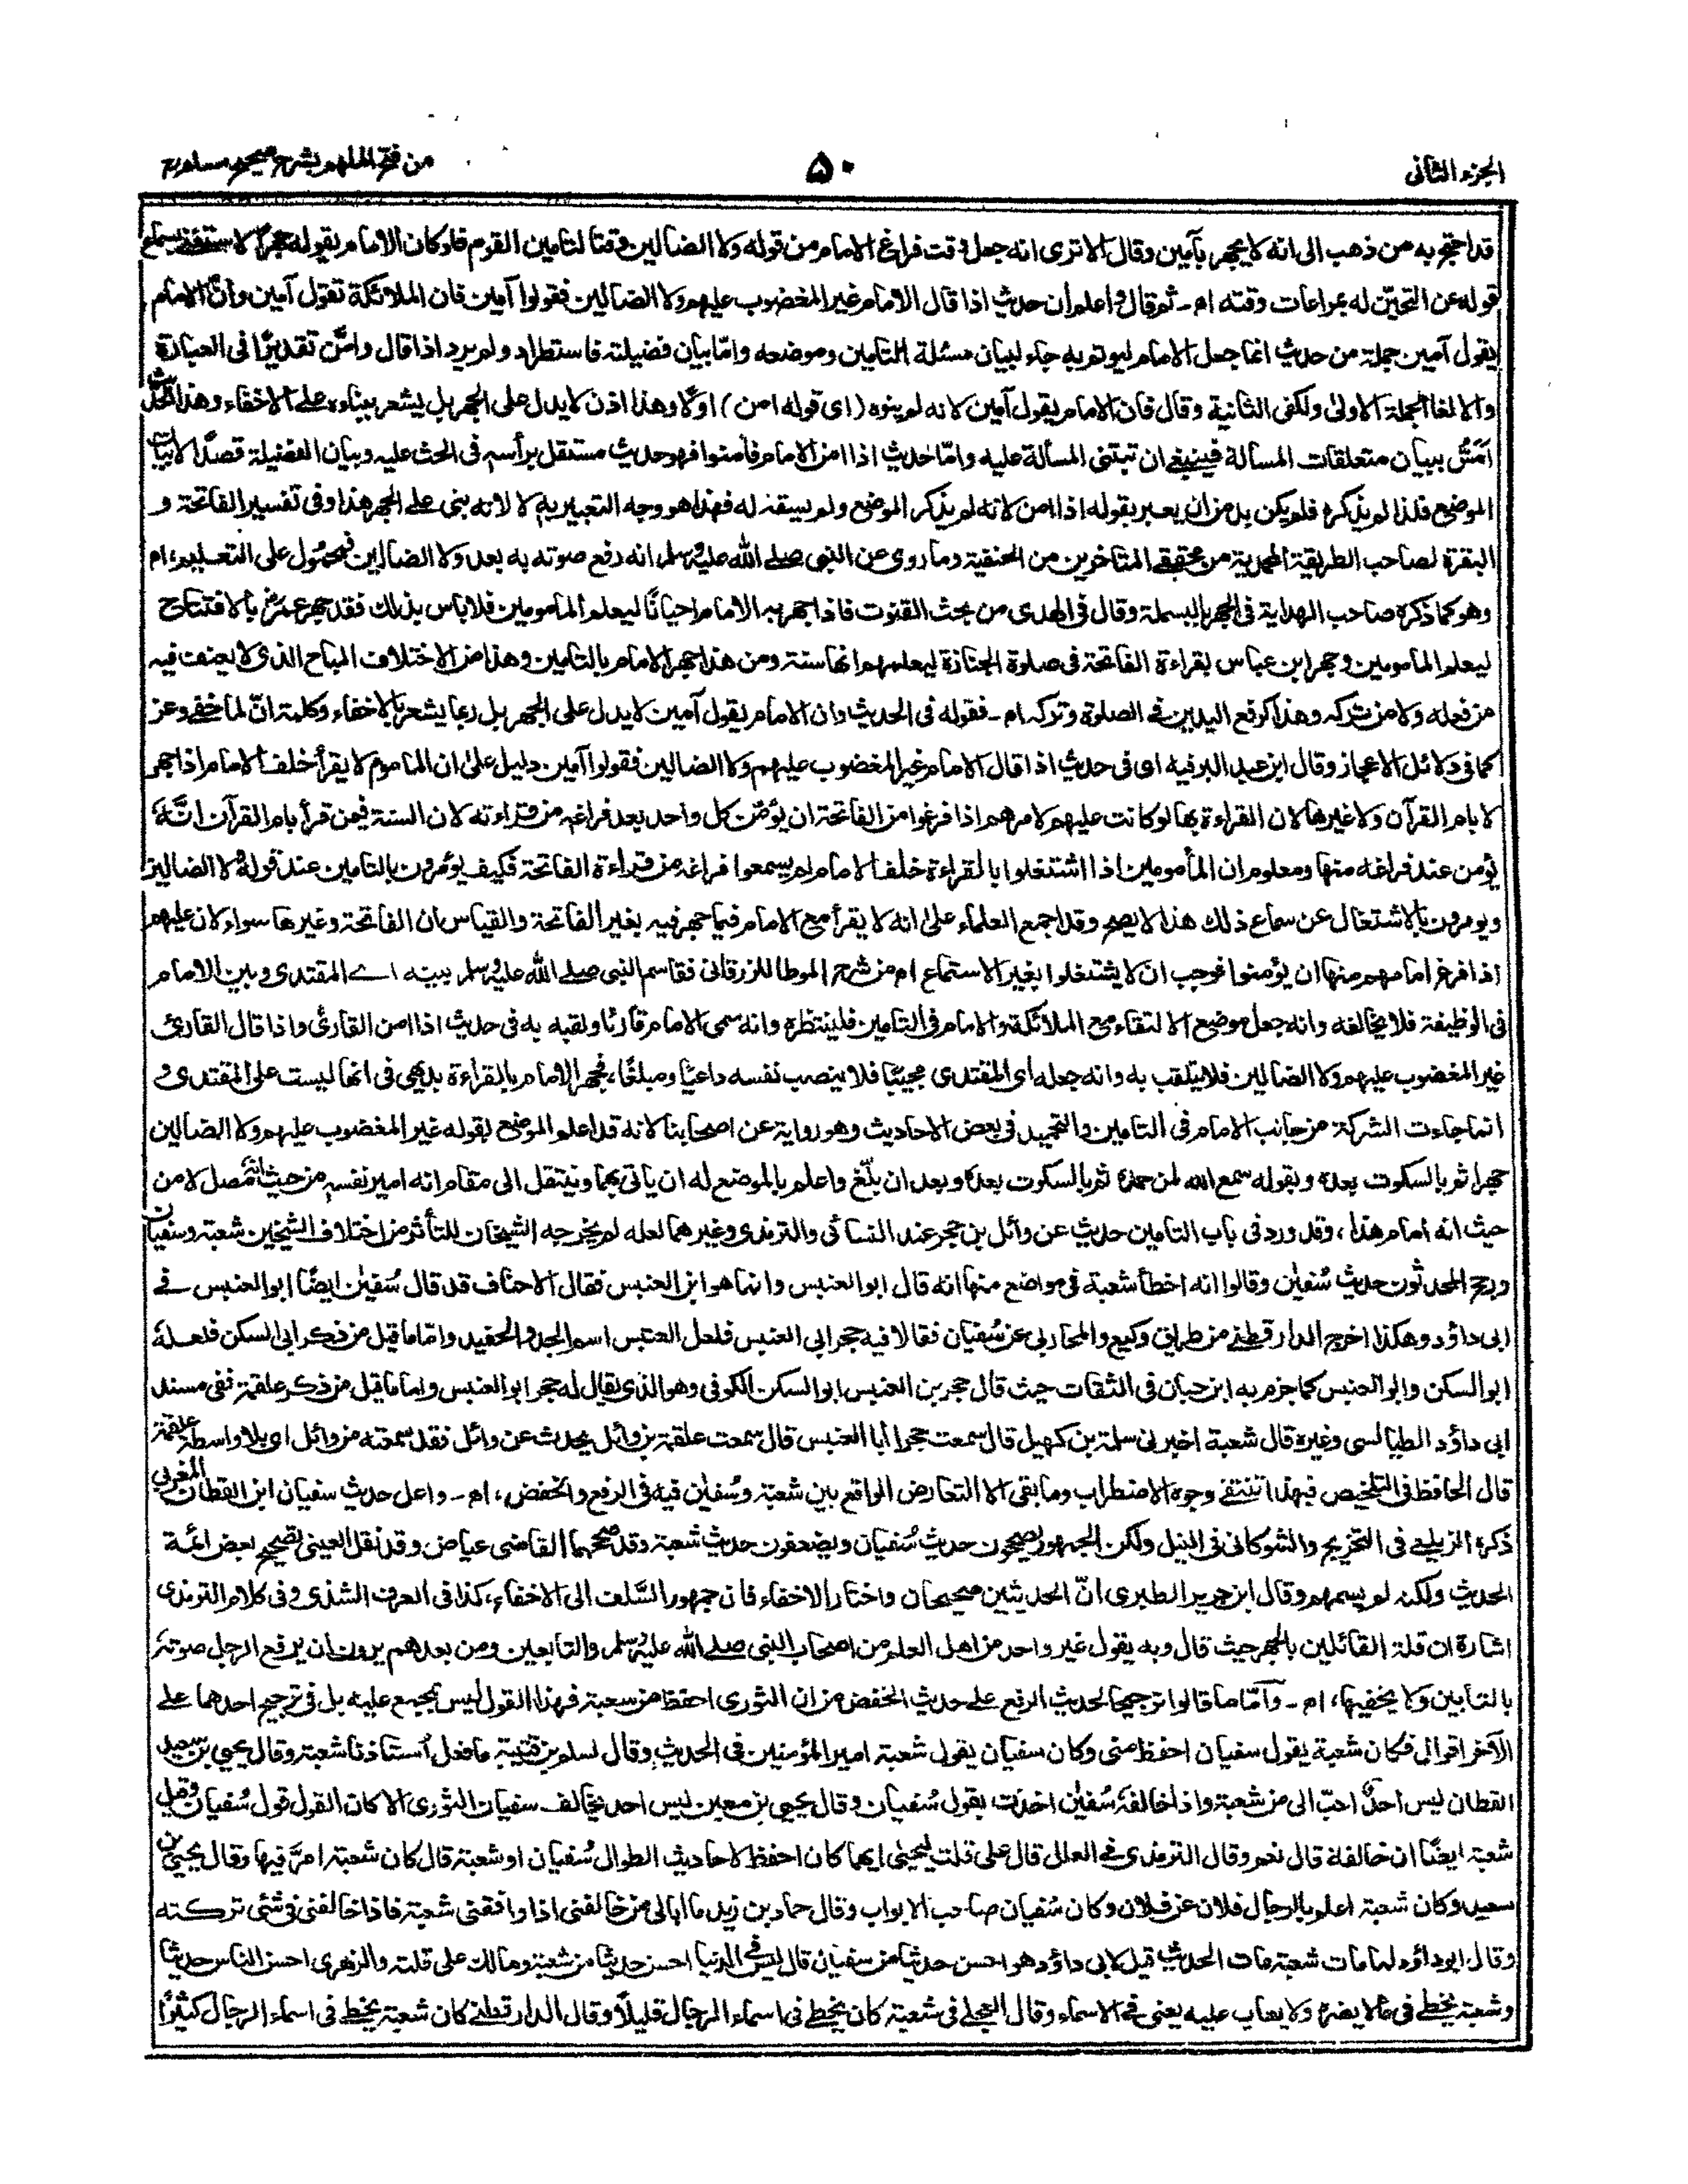 الجزء الثانى
۵۰
من فتح الملهم بشرح صحيح مسلم
قد احتج به من ذهب الى انه لا يجهر بآمين وقال الا ترى انه جعل وقت فراغ الامام من قوله ولا الضالين وقتا لتامين القوم فلو كان الامام يقوله جهرًا لاستغنى بسماع
قوله عن التحيّن له بمراعات وقته اھ - ثم قال واعلم ان حديث اذا قال الامام غير المغضوب عليهم ولا الضالين فقولوا آمين فان الملائكة تقول آمين وانّ الامام
يقول آمين جملة من حديث انما جعل الامام ليوتم به جاء لبيان مسئلة التامين وموضعه وامّا بيان فضيلته فاستطراد ولم يرد اذا قال وامّن تقديرًا فى العبارة
والا لغا الجملة الاولىٰ ولكفى الثانية وقال فان الامام يقول آمين لانه لم ينوه (اى قوله امن) اوّلًا وهذا اذن لا يدل على الجهر بل يشعر ببناءه على الاخفاء وهذا الحديث
اَمَسُّ ببيان متعلقات المسالة فينبغى ان تبتنى المسألة عليه وامّا حديث اذا امن الامام فأمنوا فهو حديث مستقل برأسه فى الحث عليه وبيان الفضيلة قصدًا لا بيان
الموضع فلذا لم يذكره فلم يكن بد من ان يعبر بقوله اذا امن لانه لم يذكر الموضع ولم يسبقه له فهذا هو وجه التعبير به لا لانه بنى على الجهر هذا وفى تفسير الفاتحة و
البقرة لصاحب الطريقة المحمدية من محققى المتاخرين من الحنفية وما روى عن النبى صلى الله عليه وسلم انه رفع صوته به بعد ولا الضالين فمحمول على التعليم، اھ
وهو كما ذكره صاحب الهداية فى الجهر بالبسملة وقال فى الهدى من بحث القنوت فاذا جهر به الامام احيانًا ليعلم المأمومين فلا باس بذلك فقد جهر عمرؓ بالافتتاح
ليعلم المأمومين وجهر ابن عباس بقراءة الفاتحة فى صلوة الجنازة ليعلمهم انها سنة ومن هذا جهر الامام بالتامين وهذا من الاختلاف المباح الذى لا يعنف فيه
من فعله ولا من تركه وهذا كرفع اليدين فى الصلوة وتركه اھ - فقوله فى الحديث وان الامام يقول آمين لا يدل على الجهر بل ربما يشعر بالاخفاء وكلمة انّ لما خفى وعز
كما فى دلائل الاعجاز وقال ابن عبد البر فيه اى فى حديث اذا قال الامام غير المغضوب عليهم ولا الضالين فقولوا آمين دليل علىٰ ان الماموم لا يقرأ خلف الامام اذا جهر
لا بام القرآن ولا غيرها لان القراءة بها لو كانت عليهم لامرهم اذا فرغوا من الفاتحة ان يؤمّن كل واحد بعد فراغه من قراءته لان السنة فيمن قرأ بام القرآن انّه
يؤمن عند فراغه منها ومعلوم ان المأمومين اذا اشتغلوا بالقراءة خلف الامام لم يسمعوا فراغه من قراءة الفاتحة فكيف يؤمرون بالتامين عند قوله ولا الضالين
ويومرون بالاشتغال عن سماع ذلك هذا لا يصح وقد اجمع العلماء علىٰ انه لا يقرأ مع الامام فيما جهر فيه بغير الفاتحة والقياس ان الفاتحة وغيرها سواء لان عليهم
اذا فرغ امامهم منها ان يؤمنوا فوجب ان لا يشتغلوا بغير الاستماع اھ من شرح الموطا للزرقانى فقاسم النبى صلى الله عليه وسلم بينه اے المقتدى وبين الامام
فى الوظيفة فلا يخالفه وانه جعل موضع الالتقاء مع الملائكة والامام فى التامين فلينتظره وانه سمى الامام قارئا ولقبه به فى حديث اذا امن القارئ واذا قال القارئ
غير المغضوب عليهم ولا الضالين فلا يتلقب به وانه جعله اى المقتدى مجيبًا فلا ينصب نفسه داعيًا ومبلغًا، فجهر الامام بالقراءة بدهى فى انها ليست على المقتدى و
انما جاءت الشركة من جانب الامام فى التامين والتحميد فى بعض الاحاديث وهو رواية عن اصحابنا لانه قد اعلم الموضع بقوله غير المغضوب عليهم ولا الضالين
جهرا ثم بالسكوت بعده وبقوله سمع الله لمن حمده ثم بالسكوت بعده وبعد ان بلّغ واعلم بالموضع له ان ياتى بهما وينتقل الى مقام انه امير نفسه من حيث انه مصل لا من
حيث انه امام هذا، وقد ورد فى باب التامين حديث عن وائل بن حجر عند النسائى والترمذى وغيرهما لعله لم يخرجه الشيخان للتأثر من اختلاف الشيخين شعبة وسفيان
ورجح المحدثون حديث سُفيٰن وقالوا انه اخطأ شعبة فى مواضع منها انه قال ابو العنبس وانما هو ابن العنبس فقال الاحناف قد قال سُفيٰن ايضًا ابو العنبس فى
ابى داؤد وهكذا اخرج الدارقطنى من طريق وكيع والمحاربى عن سُفيان فقالا فيه حجر ابى العنبس فلعل العنبس اسم الجد والحفيد وامّا ما قيل من ذكر ابى السكن فلعله
ابو السكن وابو العنبس كما جزم به ابن حبان فى الثقات حيث قال حجر بن العنبس ابو السكن الكوفى وهو الذى يقال له حجر ابو العنبس واما ما قيل من ذكر علقمة ففى مسند
ابى داؤد الطيالسى وغيره قال شعبة اخبرنى سلمة بن كهيل قال سمعت حجرا أبا العنبس قال سمعت علقمة بن وائل يحدث عن وائل وقد سمعته من وائل اى بلا واسطة علقمة
قال الحافظ فى التلخيص فبهذا تنتفى وجوه الاضطراب وما بقى الا التعارض الواقع بين شعبة وسُفيٰن فيه فى الرفع والخفض، اھ - واعل حديث سفيان ابن القطان المغربى
ذكره الزيلعى فى التخريج والشوكانى فى النيل ولكن الجمهور يصححون حديث سُفيان ويضعفون حديث شعبة وقد صححهما القاضى عياض وقد نقل العينى تصحيح بعض ائمة
الحديث ولكنه لم يسمهم وقال ابن جرير الطبرى انّ الحديثين صحيحان واختار الاخفاء فان جمهور السَّلف الى الاخفاء، كذا فى العرف الشذى وفى كلام الترمذى
اشارة ان قلة القائلين بالجهر حيث قال وبه يقول غير واحد من اهل العلم من اصحاب النبى صلى الله عليه وسلم والتابعين ومن بعدهم يرون ان يرفع الرجل صوته
بالتامين ولا يخفيها، اھ - وأمّا ما قالوا ترجيحا لحديث الرفع على حديث الخفض من ان الثورى احفظ من شعبة فهذا القول ليس بمجمع عليه بل فى ترجيح احدهما على
الآخر اقوال فكان شعبة يقول سفيان احفظ منى وكان سفيان يقول شعبة امير المؤمنين فى الحديث وقال لسلم بن قتيبة ما فعل اُستاذنا شعبة وقال يحيى بن سعيد
القطان ليس احدٌ احبّ الى من شعبة واذا خالفه سُفيٰن اخذت بقول سُفيان وقال يحيى بن معين ليس احد يخالف سفيان الثورى الا كان القول قول سُفيان وقيل
شعبة ايضًا ان خالفه قال نعم وقال الترمذى فى العلل قال على قلت ليحيىٰ ايهما كان احفظ لاحاديث الطوال سُفيان او شعبة قال كان شعبة امرّ فيها وقال يحيىٰ بن
سعيد وكان شعبة اعلم بالرجال فلان عن فلان وكان سُفيان صاحب الابواب وقال حماد بن زيد ما ابالى من خالفنى اذا وافقنى شعبة فاذا خالفنى فى شئى تركته
وقال ابو داؤد لما مات شعبة مات الحديث قيل لابى داؤد هو احسن حديثا من سفيان قال ليس فى الدنيا احسن حديثا من شعبة ومالك على قلته والزهرى احسن الناس حديثا
وشعبة يخطى فى ما لا يضره ولا يعاب عليه يعنى فى الاسماء وقال العجلى فى شعبة كان يخطى فى اسماء الرجال قليلًا وقال الدارقطنى كان شعبة يخطى فى اسماء الرجال كثيرًا